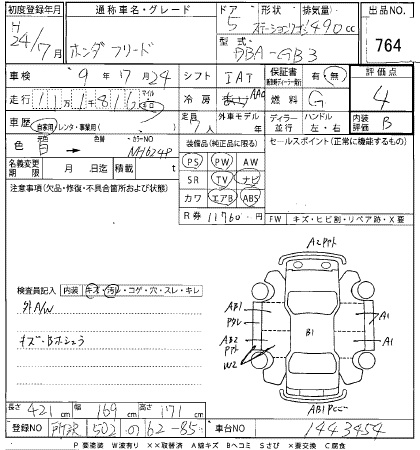 初度登録年月 通称車名・グレード ドア 形状 排気量 出品NO.
H 24/7月 ホンダ フリード 5 ステーションワゴン 1490cc 764
型式 DBA-GB3
車検 9年17月24 シフト IAT 保証書 有・無 評価点
走行 マイル キロ 冷房 AAC 燃料 G 4
車歴 自家用/レンタ・事業用( ) 定員 7人 外車モデル 年 ディーラー・並行 ハンドル 左・右 内装評価 B
色 白 色替 カラーNO NH624P 装備品(純正品に限る) セールスポイント(正常に機能するもの)
名義変更期限 月 日 積載 t PS PW AW
注意事項(欠品・修復・不具合箇所および状態) SR TV ナビ
カワ エアB ABS
R券 11760円 FW キズ・ヒビ割・リペア跡・X要
検査員記入 内装 キズ・汚レ・コゲ・穴・スレ・キレ
外A/W
キズ・Bホシュウ
AB1
AB2
W2
B1
A1
A1
長さ 421cm 幅 169cm 高さ 171cm
登録NO 所沢 502 の 62-85 車台NO 1443454
P 要塗装 W波有り ××取替済 A線キズ Bヘコミ Sさび ×要交換 C腐食